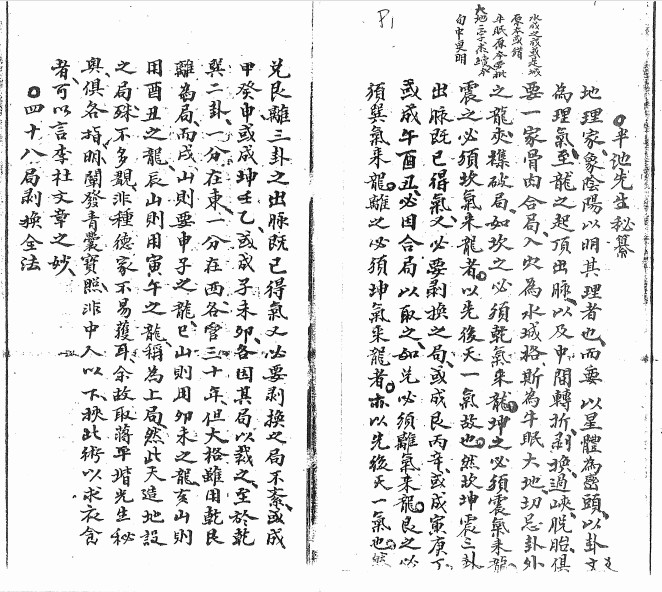 P1
水成之成或是城
原本或錯
牛眠原本無批
大地二字未鈔全
向中更明
平池先生秘纂
地理家象陰陽以明其理者也而要以星體為巒頭以卦爻
為理氣至龍之起頂出脉以及中間轉折剥換過峽脫胎俱
要一家骨肉合局入穴為水城格斯為牛眠大地切忌卦外
之龍夾襍破局如坎之必須乾氣來龍坤之必須震氣來龍
震之必須坎氣來龍者以先後天一氣故也然坎坤震三卦
出脉既已得氣又必要剥換之局或成艮丙辛或成寅庚丁
或成午酉丑必因合局以取之如兑必須離氣來龍艮之必
須巽氣來龍離之必須坤氣來龍者亦以先後天一氣也然
兑艮離三卦之出脉既已得氣又必要剥換之局不紊或成
甲癸申或成坤壬乙或成子未卯各因其局以裁之至於乾
巽二卦一分在東一分在西各管三十年但大格雖用乾艮
離為局而戌山則要申子之龍巳山則用卯未之龍亥山則
用酉丑之龍辰山則用寅午之龍稱為上局然此天造地設
之局殊不多覯非種德家不易獲耳余故取蔣平堦先生秘
輿俱各指明闡發青囊寶照非中人以下挾此術以求衣食
者可以言李社文章之妙
四十八局剥換全法